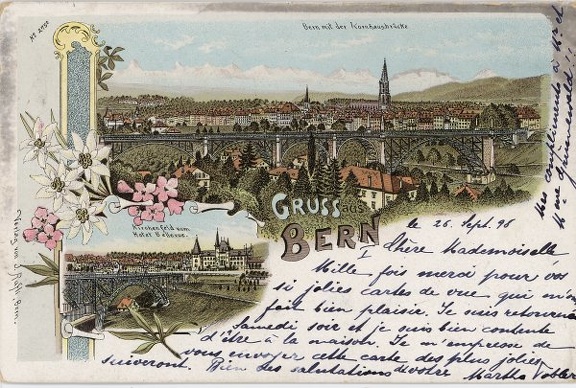 Bern mit der Kornhausbrücke
GRUSS aus
BERN
Kirchenfeld vom
Hotel Bellevue.
le 26. Sept. 98
Chère Mademoiselle
Mille fois merci pour vos
si jolies cartes de vue qui m'ont
fait bien plaisir. Je suis retournée
Samedi soir et je suis bien contente
d'être à la maison. Je m'empresse de
vous envoyer cette carte des plus jolies
suiveront. Bien des salutations de votre Martha
mes compliments à Mr et
Mme